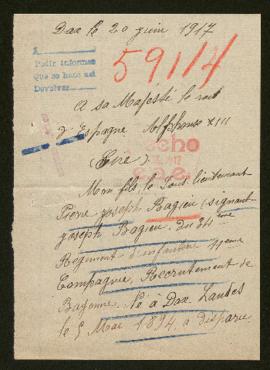 Dax le 20 juin 1917
A
Pedir informes
Que se hace así
Devolver
59114
A sa Majesté le roi
d'Espagne Alphonse XIII
(Sire)
Mon fils le Sous-lieutenant
Pierre Joseph Bagieu (signant
Joseph Bagieu) du 34ème
Regiment d'infanterie 11eme
Compagnie, Recrutement de
Bayonne. Né à Dax Landes
le 5 Mai 1894, a disparu